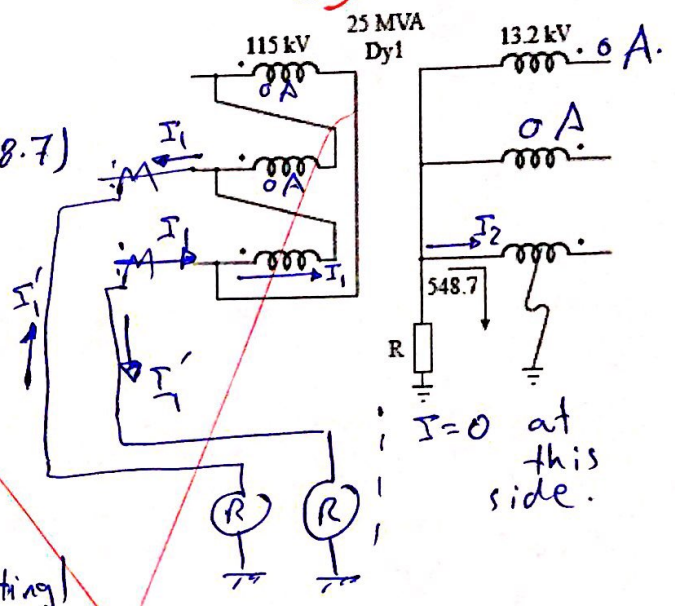 25 MVA
Dy1
115 kV
13.2 kV
0 A.
0 A
0 A
0 A
8.7)
I₁
I₁
I₁
I₂
548.7
I₁'
I₁'
R
I=0 at
this
side.
R
R
ting)